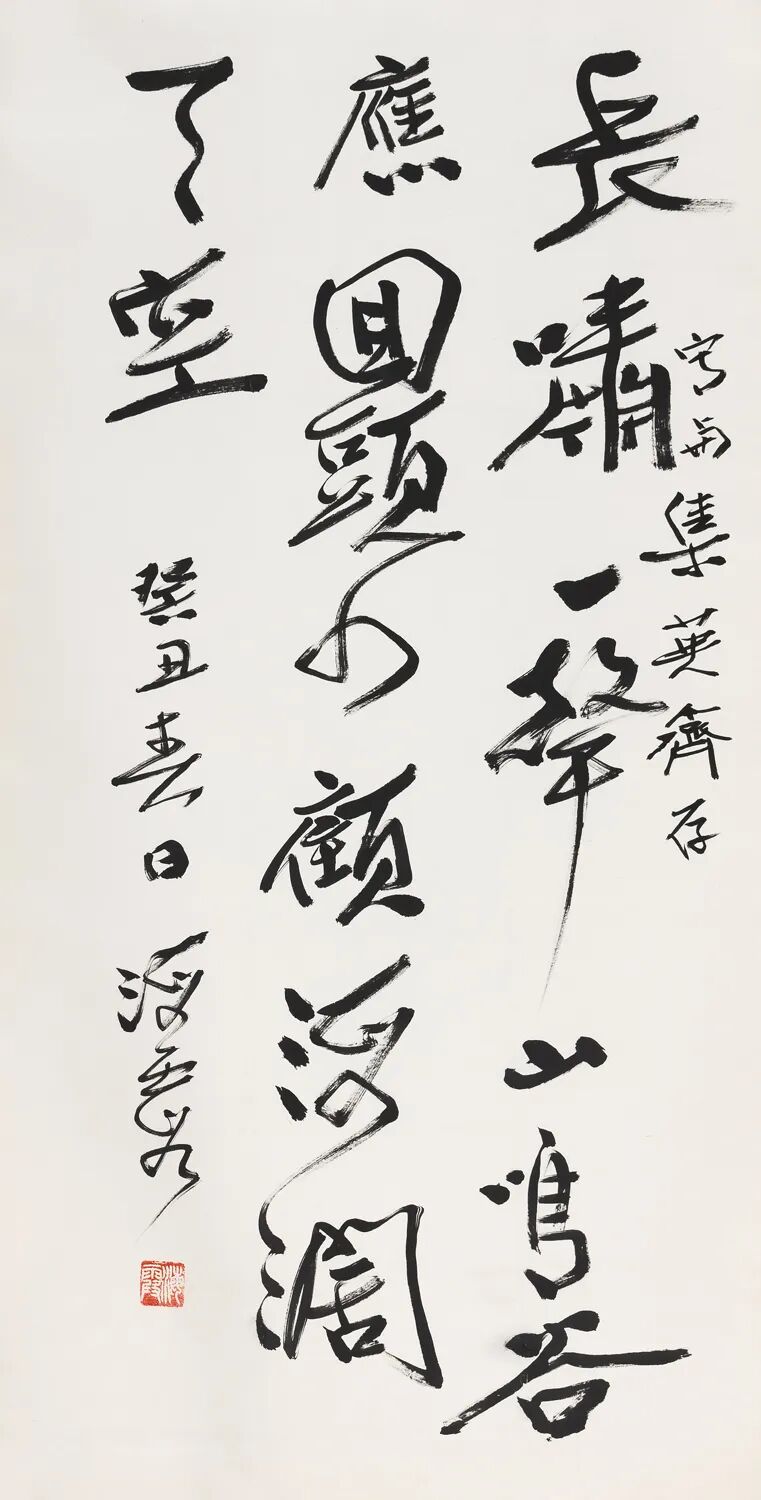 寫與集英齋存
長嘯一聲山鳴谷
應回頭四顧海闊
天空
癸丑春日海霞
海霞